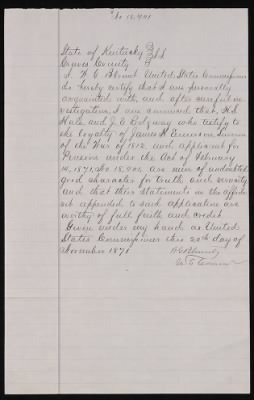 No 15,901
State of Kentucky
Graves County } Sct
I, W C Blount United States Commissioner
do hereby certify that I am personally
acquainted with, and after careful in-
vestigation, I am convinced that, H. S.
Hale and J. C. who certify to
the loyalty of James H survivor
of the War of 1812, and applicant for
Pension under the Act of February
14, 1871, No 15,901 are men of undoubted
good character for truth and veracity
and that their statements in the affida-
vit appended to said application are
worthy of full faith and credit
Given under my hand as United
States Commissioner this 20th day of
November 1871
W C Blount
U. S. Commr